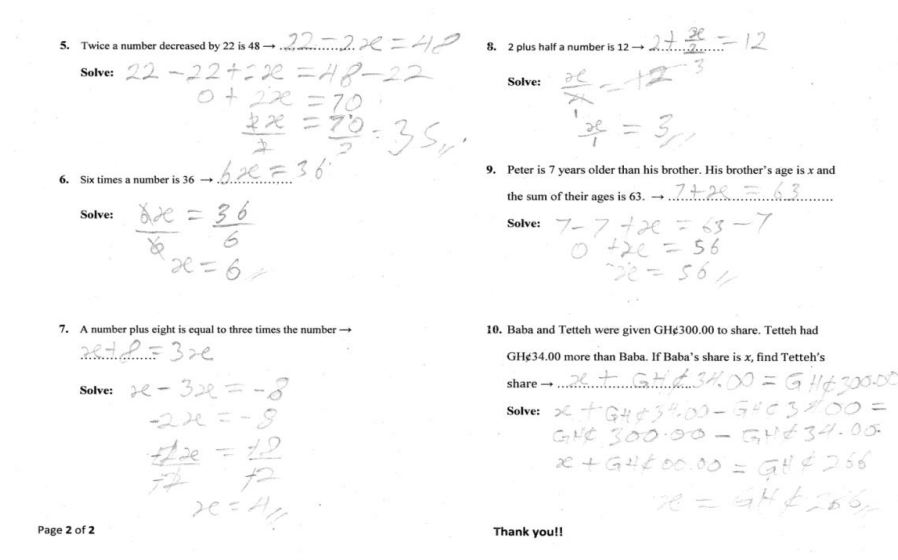 5. Twice a number decreased by 22 is 48 → 22 - 2x = 48
Solve: 22 - 22 + 2x = 48 - 22
0 + 2x = 70
2x/2 = 70/2 = 35
6. Six times a number is 36 → 6x = 36
Solve: 6x/6 = 36/6
x = 6
7. A number plus eight is equal to three times the number →
x + 8 = 3x
Solve: x - 3x = -8
-2x = -8
-2x/-2 = -8/-2
x = 4
Page 2 of 2
8. 2 plus half a number is 12 → 2 + x/2 = 12
Solve:
x/1 = 3
9. Peter is 7 years older than his brother. His brother's age is x and
the sum of their ages is 63. → 7 + x = 63
Solve: 7 - 7 + x = 63 - 7
0 + x = 56
x = 56
10. Baba and Tetteh were given GH¢300.00 to share. Tetteh had
GH¢34.00 more than Baba. If Baba's share is x, find Tetteh's
share → x + GH¢34.00 = GH¢300.00
Solve: x + GH¢34.00 - GH¢34.00 =
GH¢ 300.00 - GH¢34.00
x + GH¢00.00 = GH¢266
x = GH¢266
Thank you!!